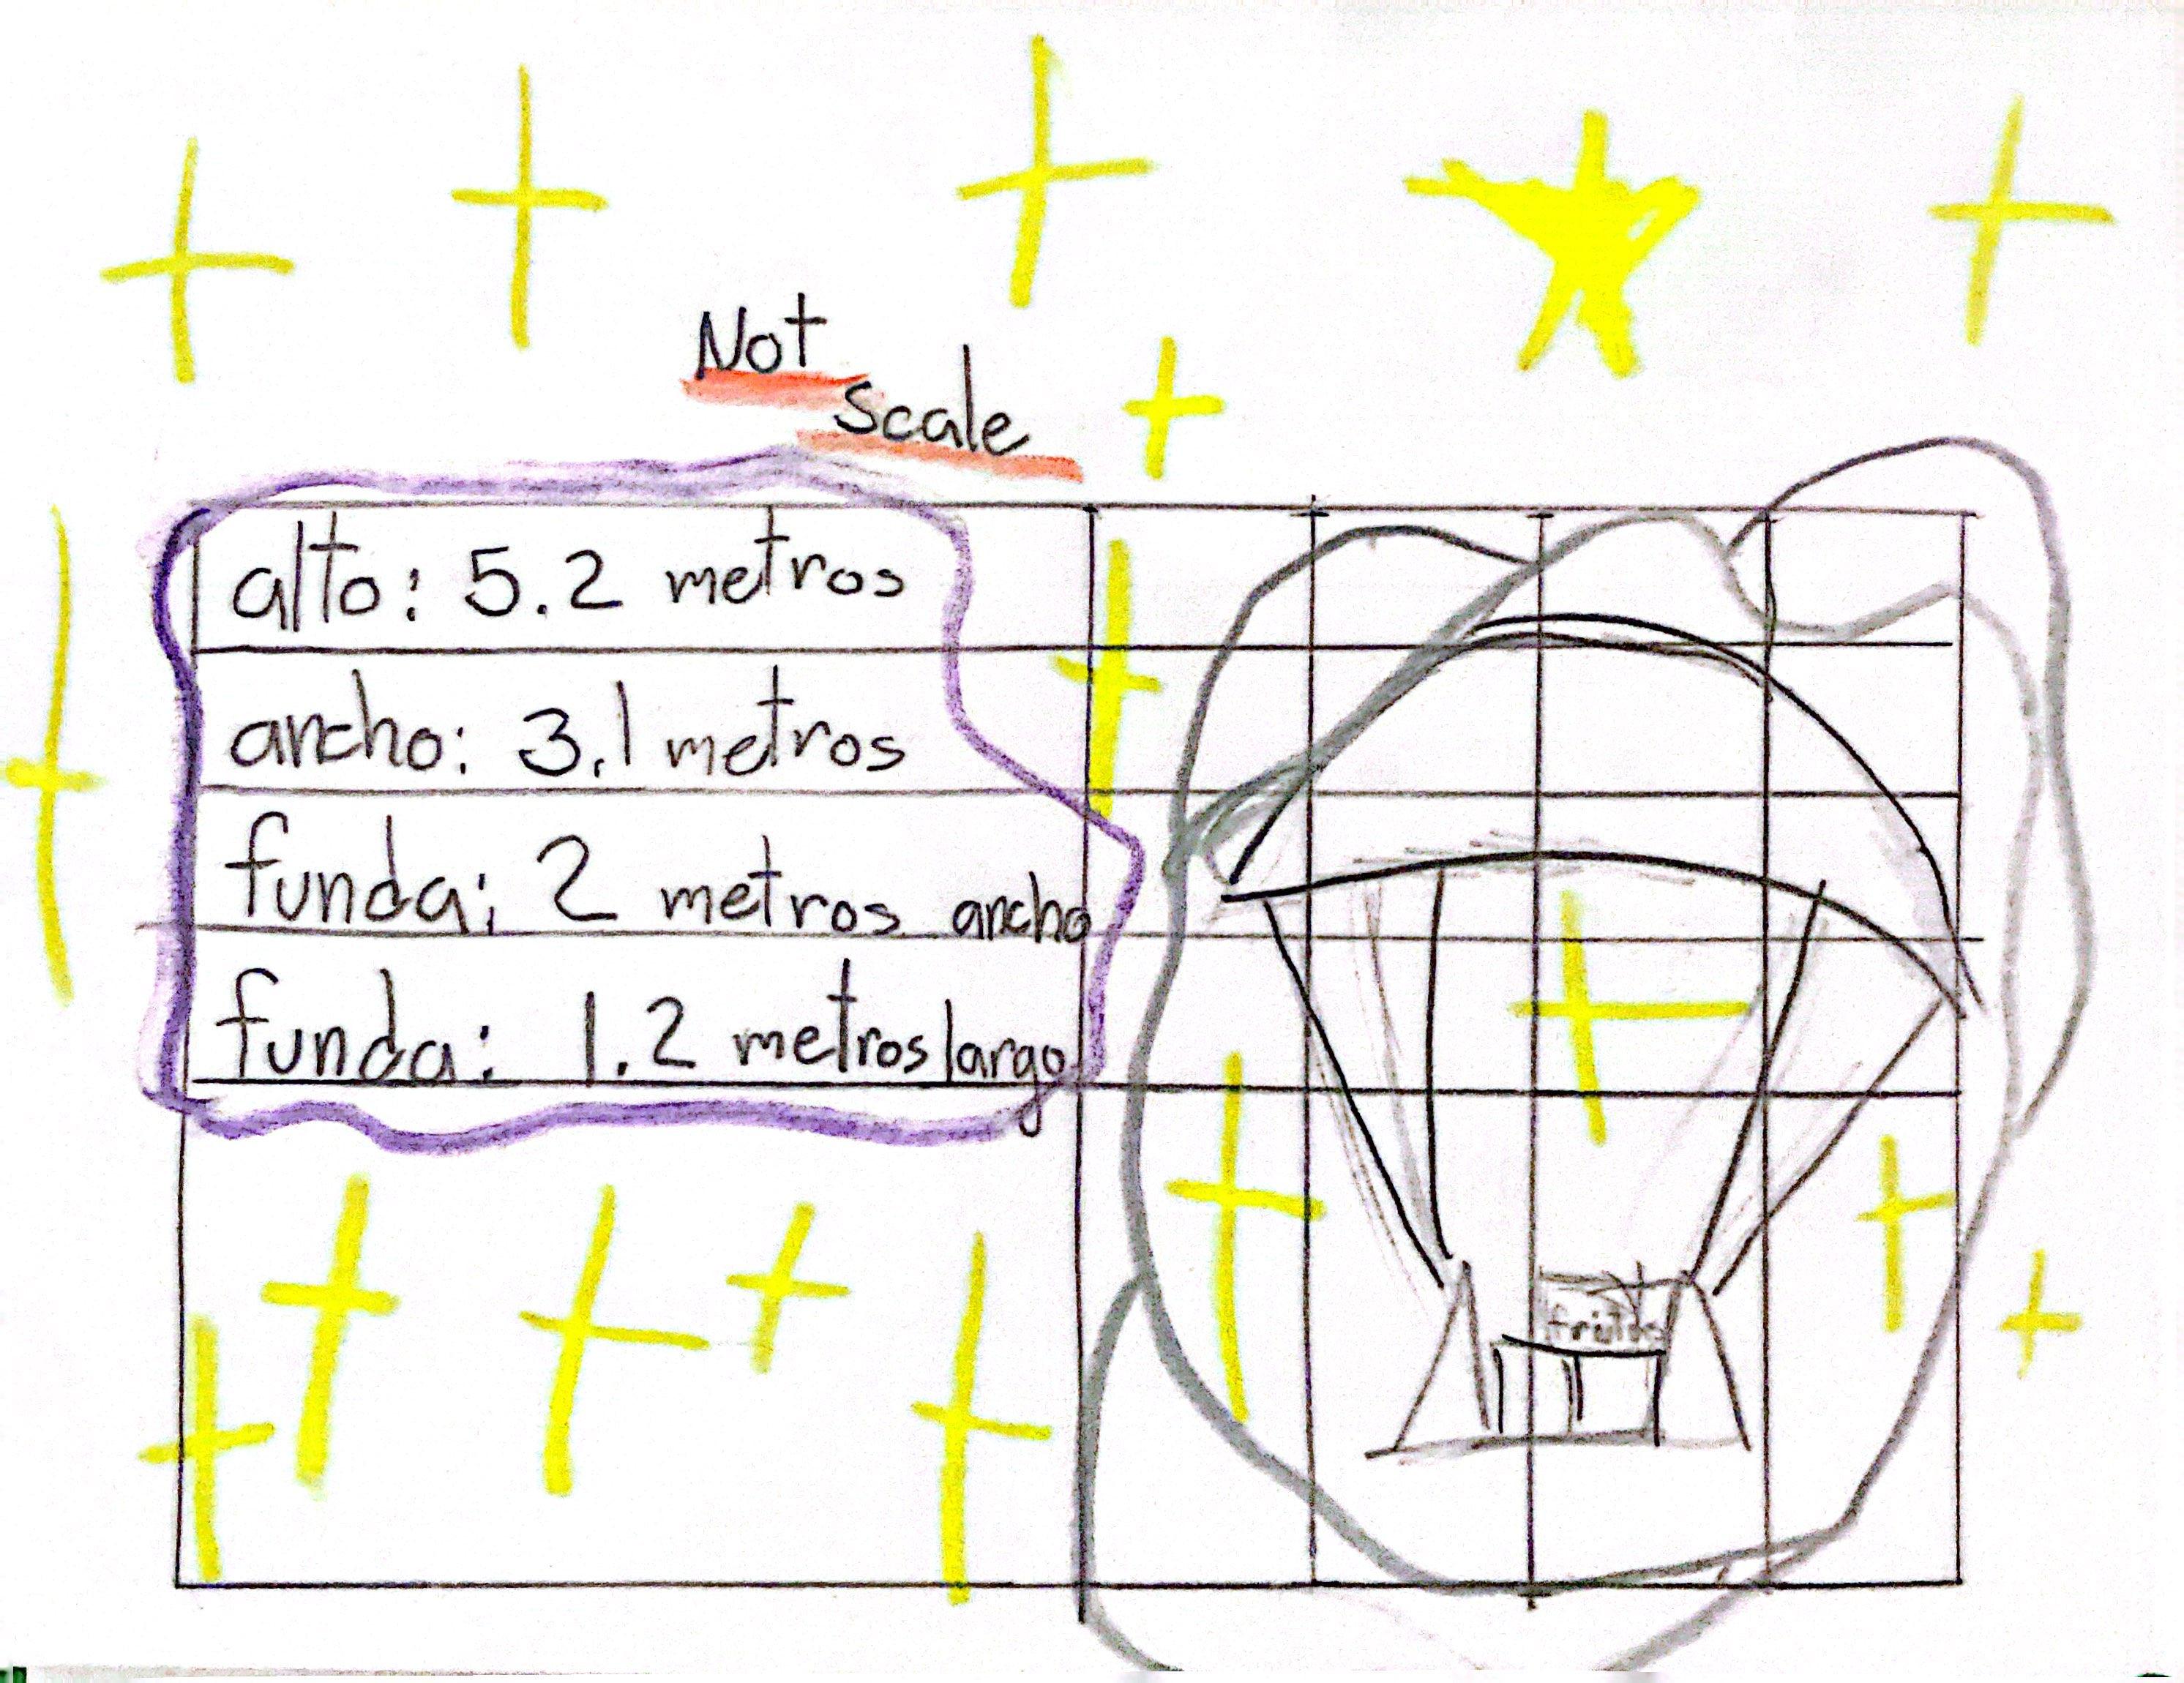 Not
scale
alto: 5.2 metros
ancho: 3.1 metros
funda: 2 metros ancho
funda: 1.2 metros largo